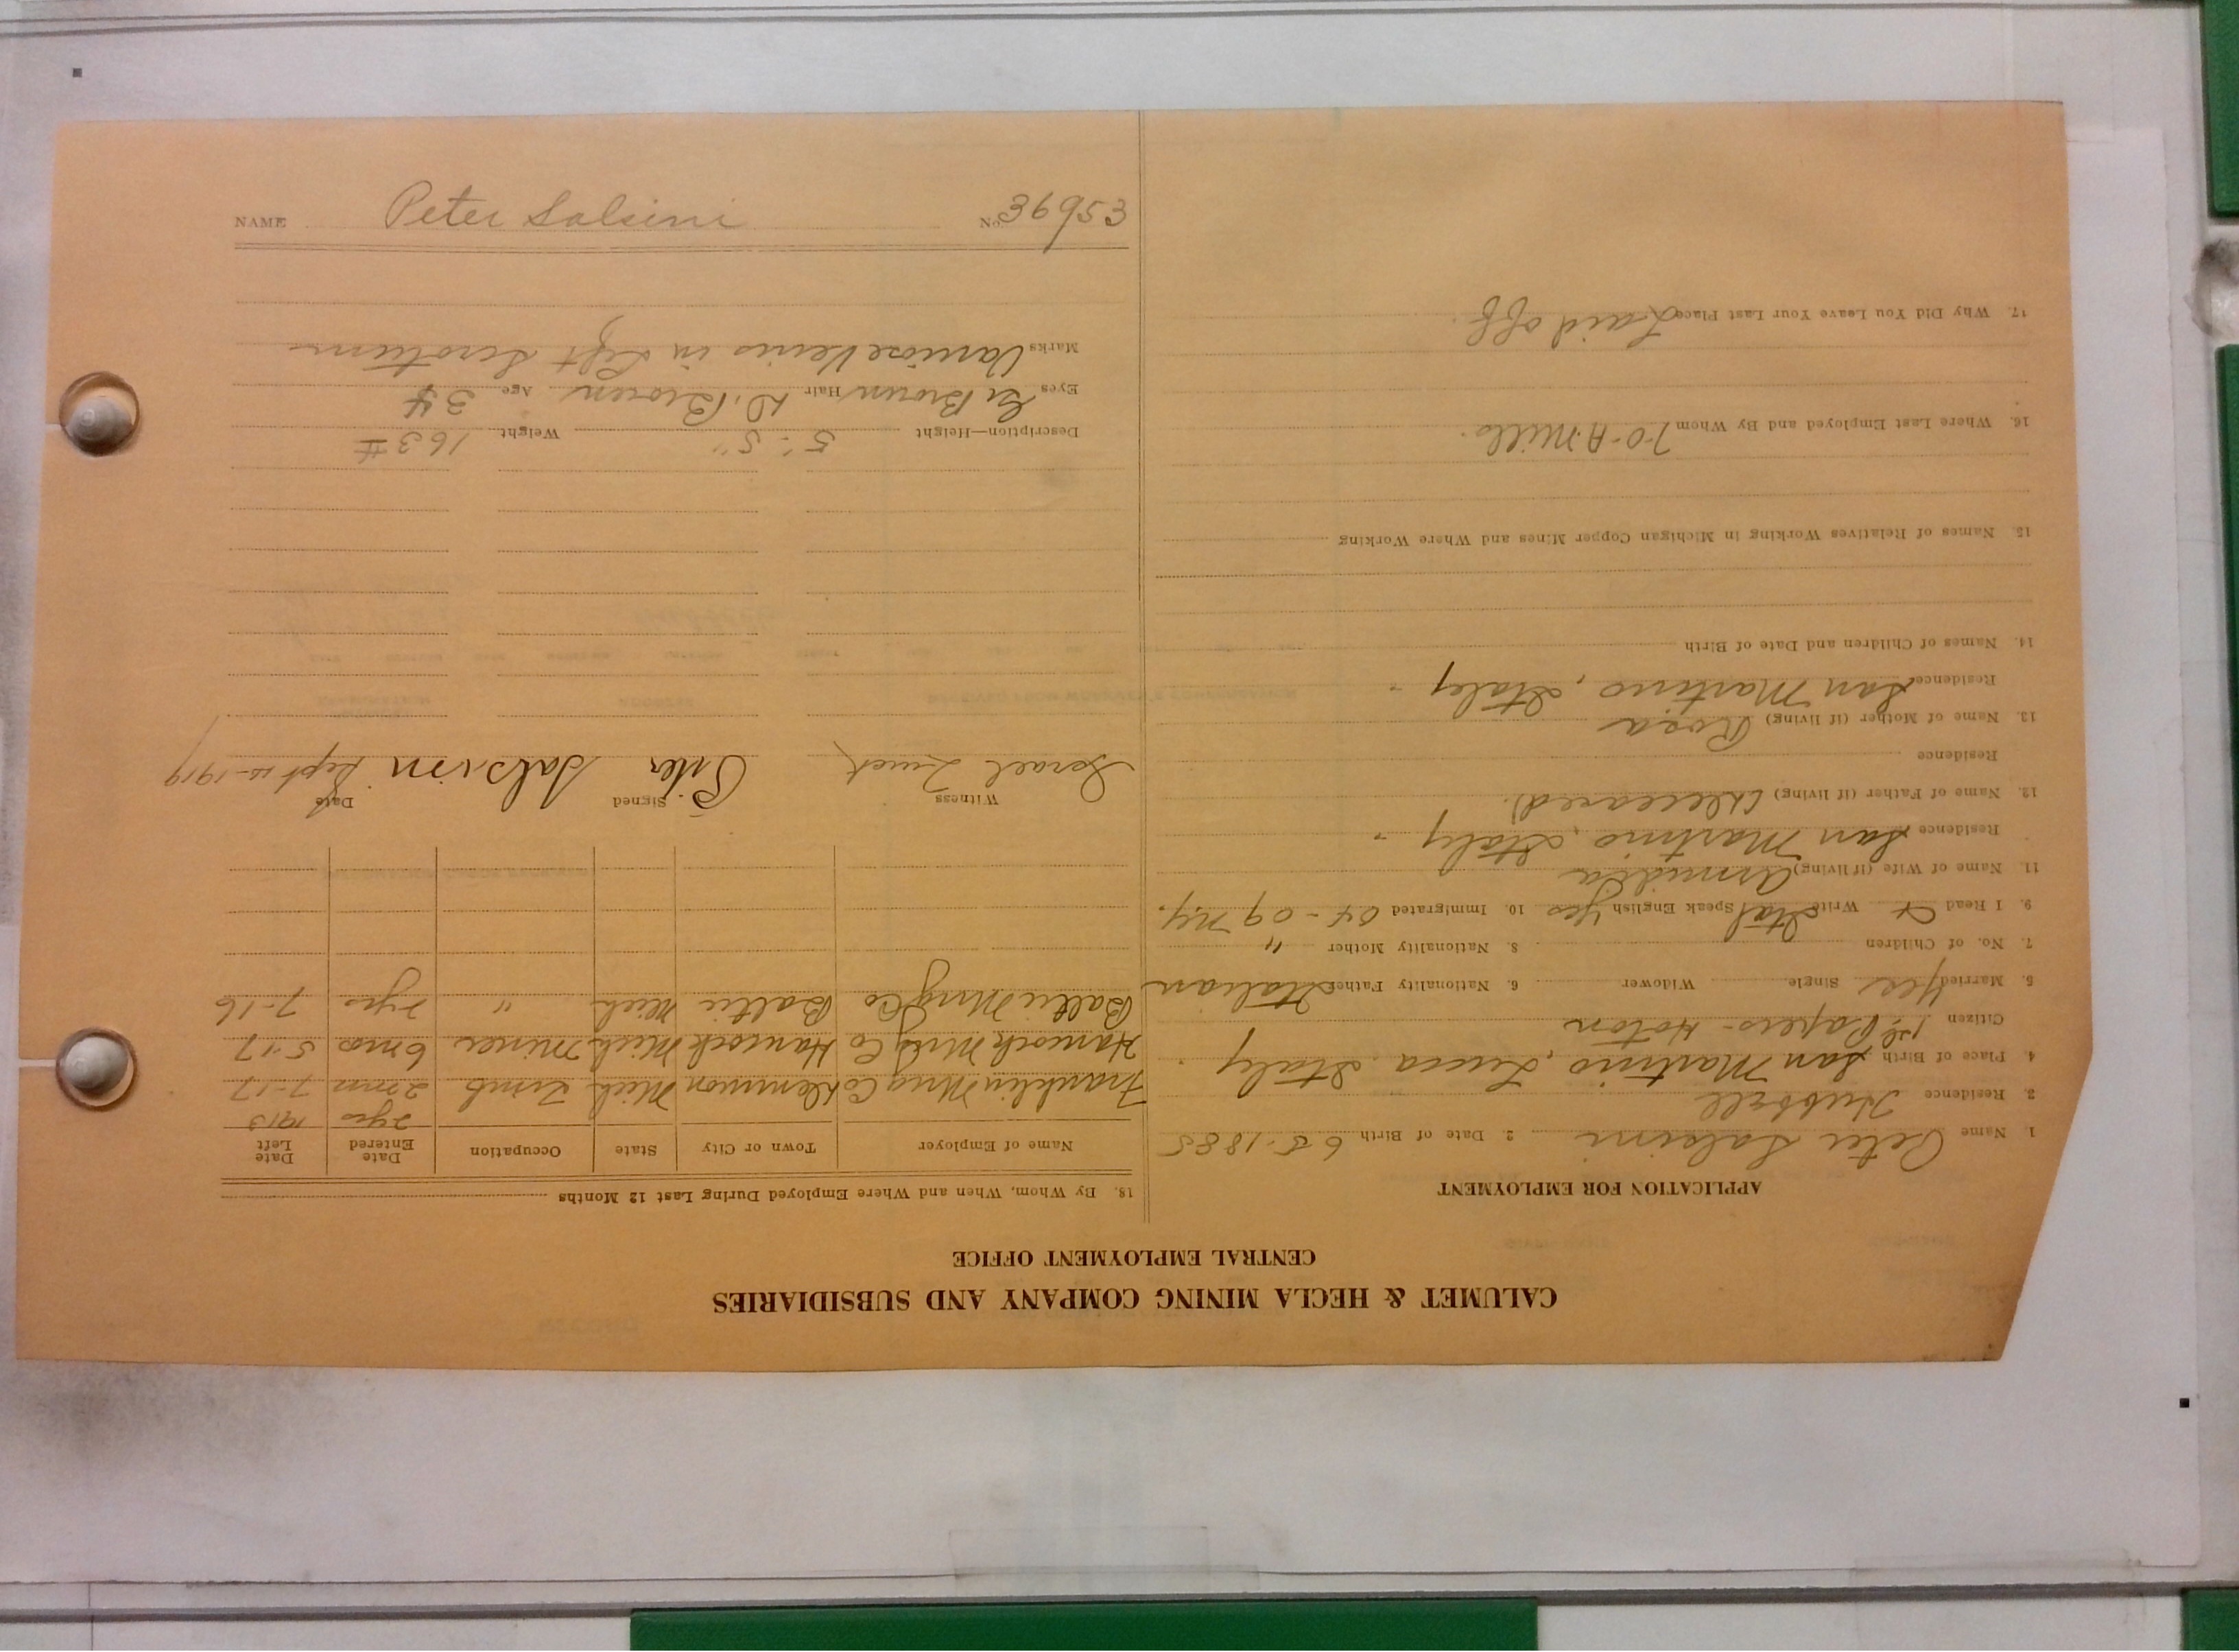 CALUMET & HECLA MINING COMPANY AND SUBSIDIARIES
CENTRAL EMPLOYMENT OFFICE
APPLICATION FOR EMPLOYMENT
1. Name Peter Salsini 2 Date of Birth 6-5-1885
3. Residence Hubbell
4. Place of Birth San Martino, Lucca Italy.
Citizen 1st Papers - Hoton
5. Married Yes Single Widower 6. Nationality Father Italian
7. No. of Children 8. Nationality Mother "
9. I Read & Write Ital Speak English Yes 10. Immigrated 04-09 N.Y.
11. Name of Wife (if living) Armida
Residence San Martino, Italy.
12. Name of Father (if living) (Deceased).
Residence
13. Name of Mother (if living) Rosa
Residence San Martino, Italy.
14. Names of Children and Date of Birth
15. Names of Relatives Working in Michigan Copper Mines and Where Working
16. Where Last Employed and By Whom Mills.
17. Why Did You Leave Your Last Place Laid off.
18. By Whom, When and Where Employed During Last 12 Months
Name of Employer Town or City State Occupation Date Entered Date Left
2 yrs 1913
Franklin Mng Co Demmon Mich Timb 2 mos 7-17
Hancock Mng Co Hancock Mich miner 6 mos 5-17
Baltic Mng Co Baltic Mich " 2 yrs 7-16
Witness Signed Date
Israel Peter Salsini Sept 1919
Description—Height 5'-5" Weight 163#
Eyes Brown Hair D. Brown Age 34
Marks Varicose Veins in Left Scrotum
NAME Peter Salsini No. 36953